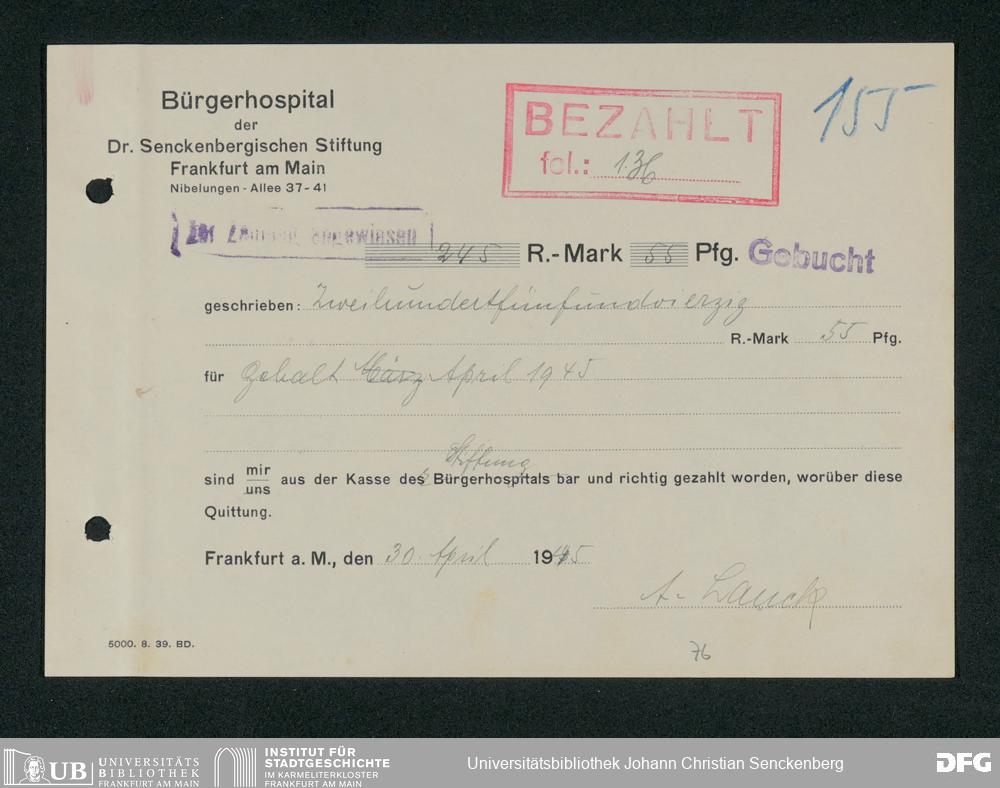 Bürgerhospital
der
Dr. Senckenbergischen Stiftung
Frankfurt am Main
Nibelungen - Allee 37-41
BEZAHLT
fol.: 136
155
Zur Zahlung angewiesen
245 R.-Mark 55 Pfg. Gebucht
geschrieben: Zweihundertfünfundvierzig
R.-Mark 55 Pfg.
für Gehalt März April 1945
Stiftung
sind mir/uns aus der Kasse des Bürgerhospitals bar und richtig gezahlt worden, worüber diese
Quittung.
Frankfurt a. M., den 30. April 1945
A. Lauck
5000. 8. 39. BD.
76
UB UNIVERSITÄTS
BIBLIOTHEK
FRANKFURT AM MAIN
INSTITUT FÜR
STADTGESCHICHTE
IM KARMELITERKLOSTER
FRANKFURT AM MAIN
Universitätsbibliothek Johann Christian Senckenberg
DFG